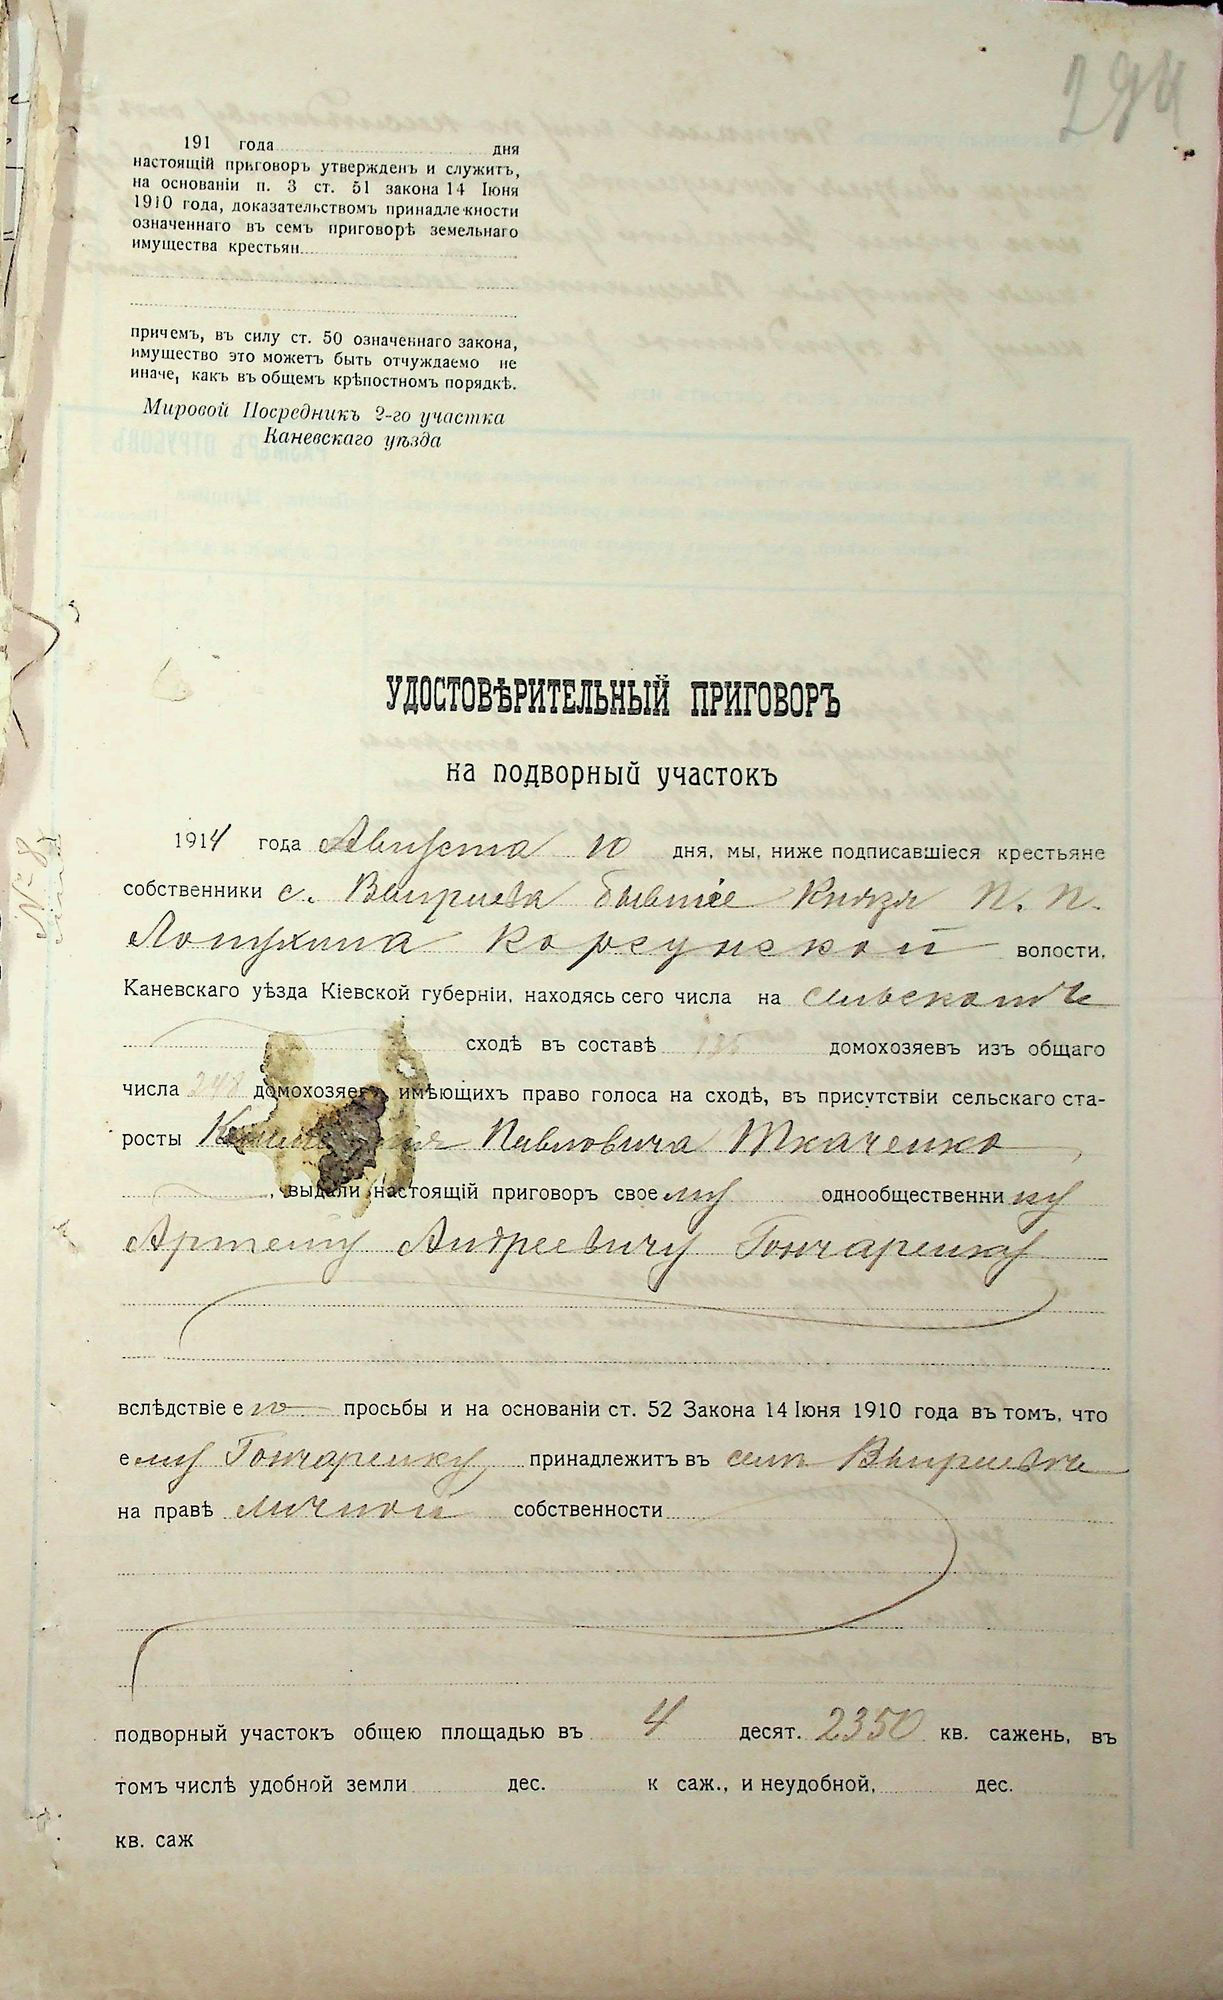 294
191 года дня
настоящій приговоръ утвержденъ и служитъ,
на основаніи п. 3 ст. 51 закона 14 Іюня
1910 года, доказательствомъ принадлежности
означеннаго въ семъ приговорѣ земельнаго
имущества крестьян
причемъ, въ силу ст. 50 означеннаго закона,
имущество это можетъ быть отчуждаемо не
иначе, какъ въ общемъ крѣпостномъ порядкѣ.
Мировой Посредникъ 2-го участка
Каневскаго уѣзда
УДОСТОВѢРИТЕЛЬНЫЙ ПРИГОВОРЪ
на подворный участокъ
1914 года Августа 10 дня, мы, ниже подписавшіеся крестьяне
собственники с. Выграева бывшіе Князя П. П.
Лопухина Корсунской волости,
Каневскаго уѣзда Кіевской губерніи, находясь сего числа на сельскомъ
сходѣ въ составѣ домохозяевъ изъ общаго
числа 248 домохозяевъ имѣющихъ право голоса на сходѣ, въ присутствіи сельскаго ста-
росты Павловича Ткаченко,
, выдали настоящій приговоръ своему однообщественнику
Артему Андреевичу Гончаренку
вслѣдствіе его просьбы и на основаніи ст. 52 Закона 14 Іюня 1910 года въ томъ, что
ему Гончаренку, принадлежитъ въ селѣ Выграевѣ
на правѣ личной собственности
подворный участокъ общею площадью въ 4 десят. 2350 кв. сажень, въ
томъ числѣ удобной земли дес. к саж., и неудобной, дес.
кв. саж
№ 8